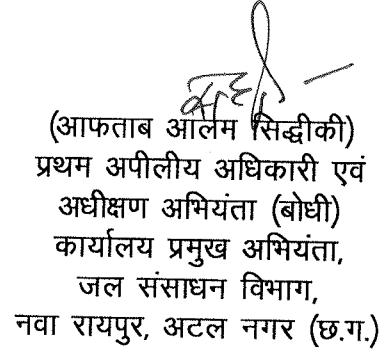 (आफताब आलम सिद्धीकी)
प्रथम अपीलीय अधिकारी एवं
अधीक्षण अभियंता (बोधी)
कार्यालय प्रमुख अभियंता,
जल संसाधन विभाग,
नवा रायपुर, अटल नगर (छ.ग.)